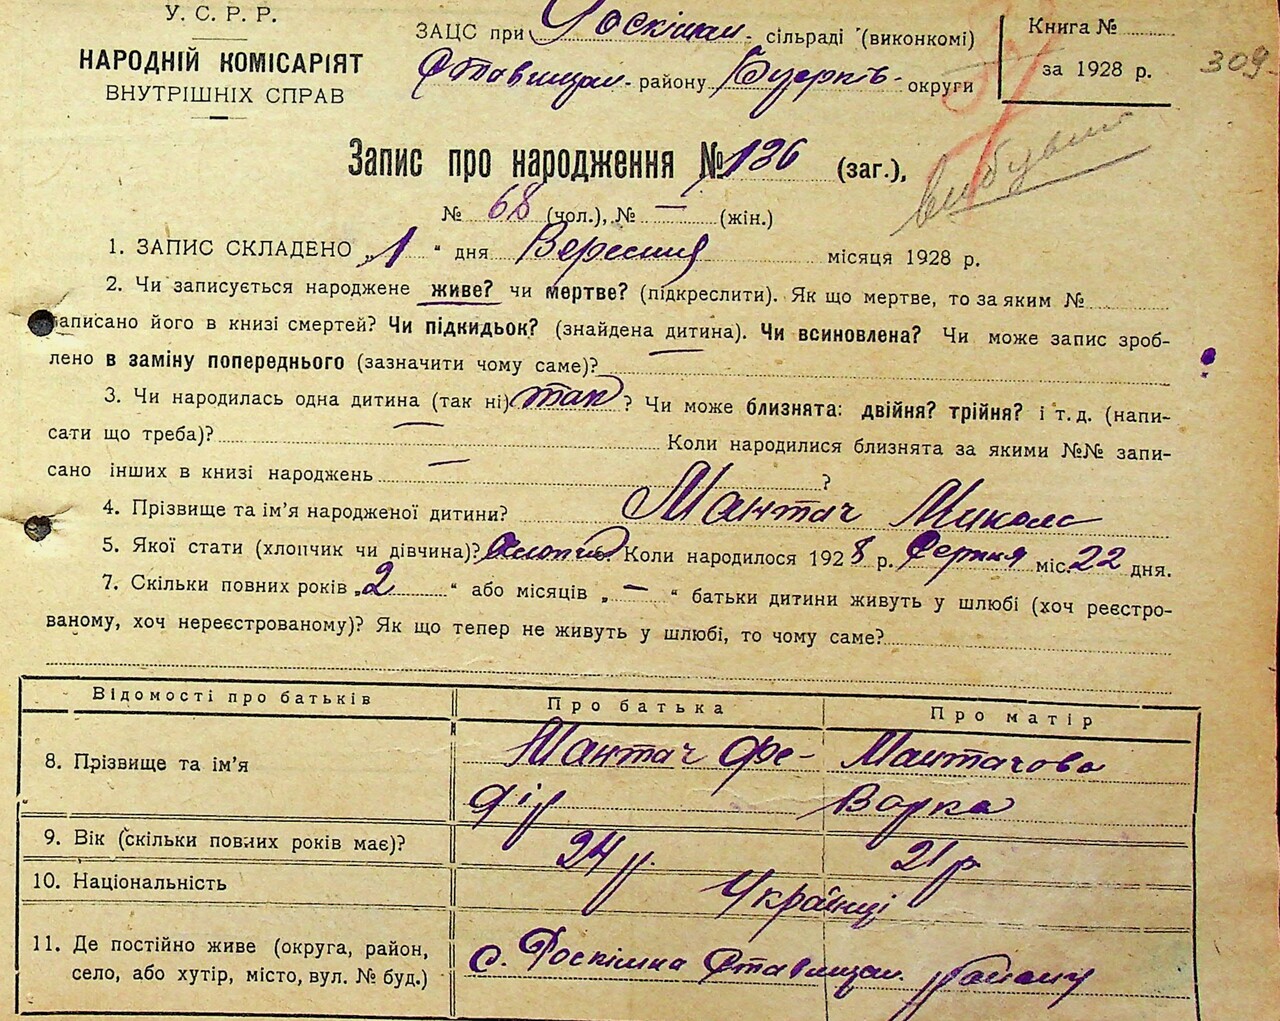 У. С. Р. Р.
НАРОДНІЙ КОМІСАРІЯТ
ВНУТРІШНІХ СПРАВ
ЗАЦС при Роскішан. сільраді (виконкомі)
Ставищан. району Б.Церків. округи
Книга №
за 1928 р.
309
вибувш
Запис про народження № 136 (заг.),
№ 68 (чол.), № — (жін.)
1. ЗАПИС СКЛАДЕНО „1“ дня Вересня місяця 1928 р.
2. Чи записується народжене живе? чи мертве? (підкреслити). Як що мертве, то за яким №
записано його в книзі смертей? Чи підкидьок? (знайдена дитина). Чи всиновлена? Чи може запис зроб-
лено в заміну попереднього (зазначити чому саме)? —
3. Чи народилась одна дитина (так ні) так? Чи може близнята: двійня? трійня? і т. д. (напи-
сати що треба)? — Коли народилися близнята за якими №№ запи-
сано інших в книзі народжень — ?
4. Прізвище та ім’я народженої дитини? Мантач Микола
5. Якої стати (хлопчик чи дівчина)? Хлопчик 6. Коли народилося 1928 р. Серпня міс. 22 дня.
7. Скільки повних років „2“ або місяців „—“ батьки дитини живуть у шлюбі (хоч реєстро-
ваному, хоч нереєстрованому)? Як що тепер не живуть у шлюбі, то чому саме?
Відомості про батьків Про батька Про матір
8. Прізвище та ім’я Мантач Фе- Мантачова
дір Варка
9. Вік (скільки повних років має)? 24 р. 21 р
10. Національність Українці
11. Де постійно живе (округа, район,
село, або хутір, місто, вул. № буд.) с. Роскішна Ставищан. району